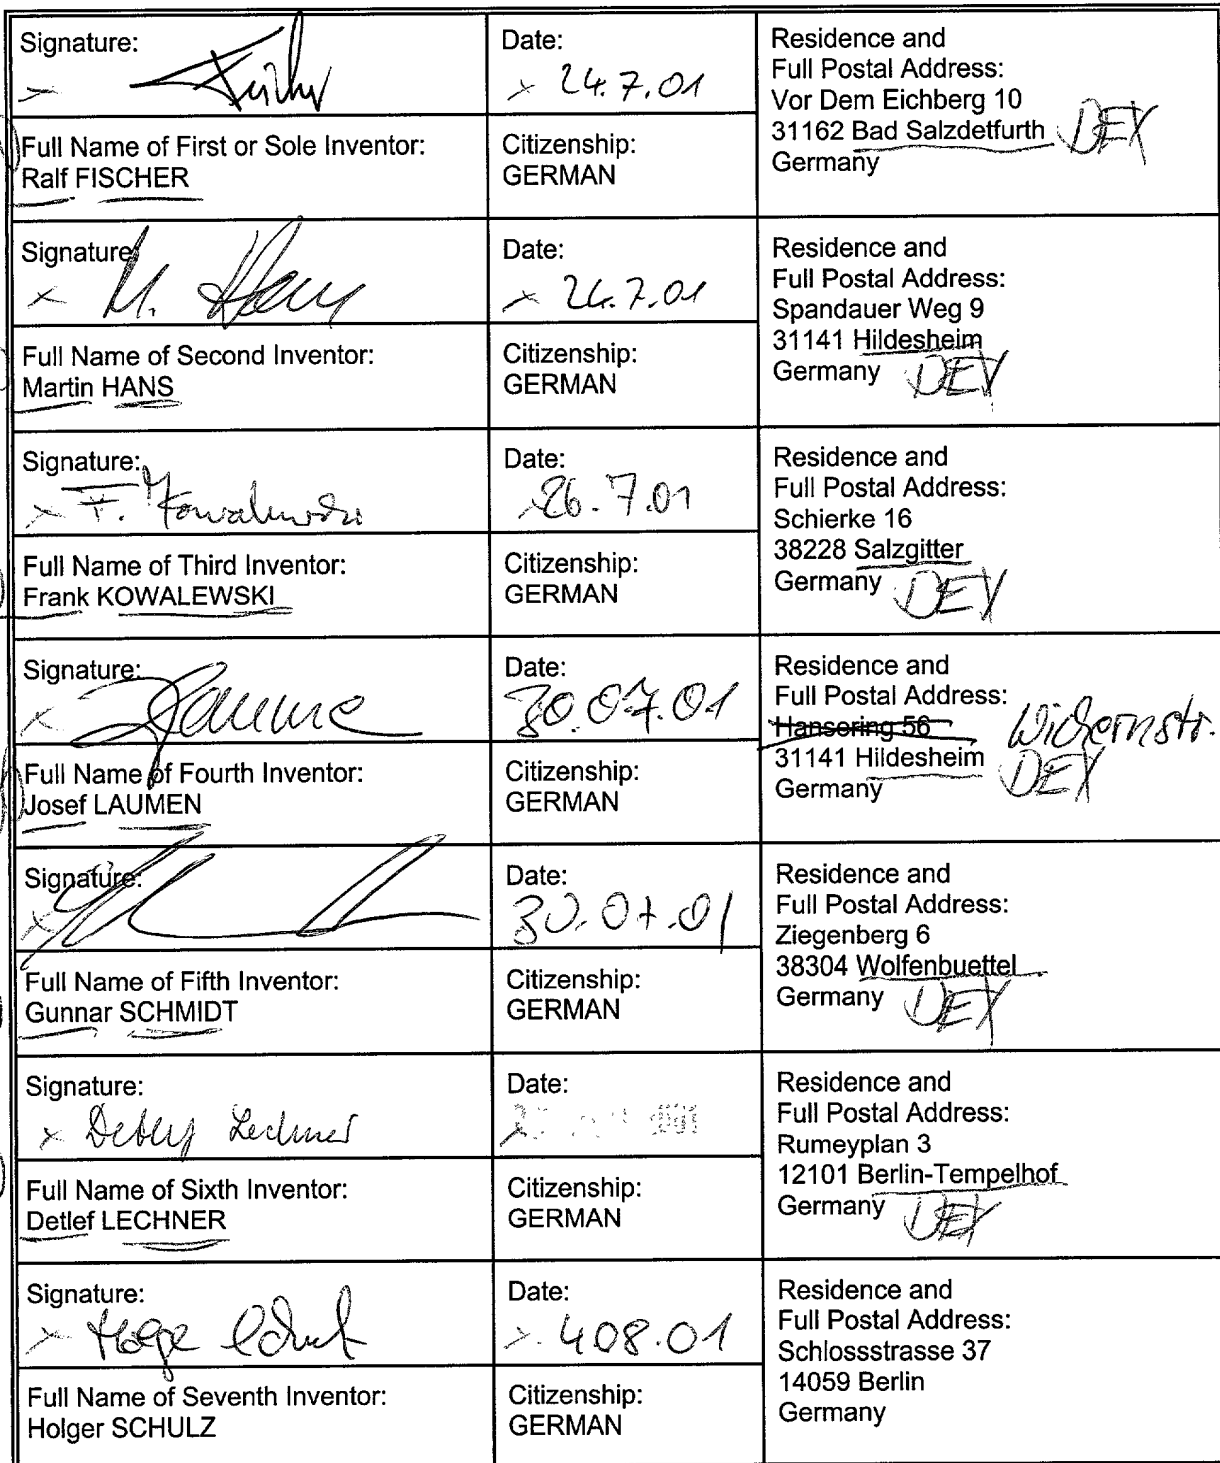 Signature:
Date:
Residence and
Full Postal Address:
Vor Dem Eichberg 10
31162 Bad Salzdetfurth DEX
Germany
x Fischer
x 24.7.01
Full Name of First or Sole Inventor:
Ralf FISCHER
Citizenship:
GERMAN
Signature:
Date:
Residence and
Full Postal Address:
Spandauer Weg 9
31141 Hildesheim
Germany DEX
x M. Hans
x 24.7.01
Full Name of Second Inventor:
Martin HANS
Citizenship:
GERMAN
Signature:
Date:
Residence and
Full Postal Address:
Schierke 16
38228 Salzgitter
Germany DEX
x F. Kowalewski
x 26.7.01
Full Name of Third Inventor:
Frank KOWALEWSKI
Citizenship:
GERMAN
Signature:
Date:
Residence and
Full Postal Address:
Hansering 56 Wichernstr.
31141 Hildesheim DEX
Germany
x
30.07.01
Full Name of Fourth Inventor:
Josef LAUMEN
Citizenship:
GERMAN
Signature:
Date:
Residence and
Full Postal Address:
Ziegenberg 6
38304 Wolfenbuettel
Germany DEX
x
30.07.01
Full Name of Fifth Inventor:
Gunnar SCHMIDT
Citizenship:
GERMAN
Signature:
Date:
Residence and
Full Postal Address:
Rumeyplan 3
12101 Berlin-Tempelhof
Germany DEX
x Detlef Lechner
x
Full Name of Sixth Inventor:
Detlef LECHNER
Citizenship:
GERMAN
Signature:
Date:
Residence and
Full Postal Address:
Schlossstrasse 37
14059 Berlin
Germany
x Holger Schulz
x 408.01
Full Name of Seventh Inventor:
Holger SCHULZ
Citizenship:
GERMAN